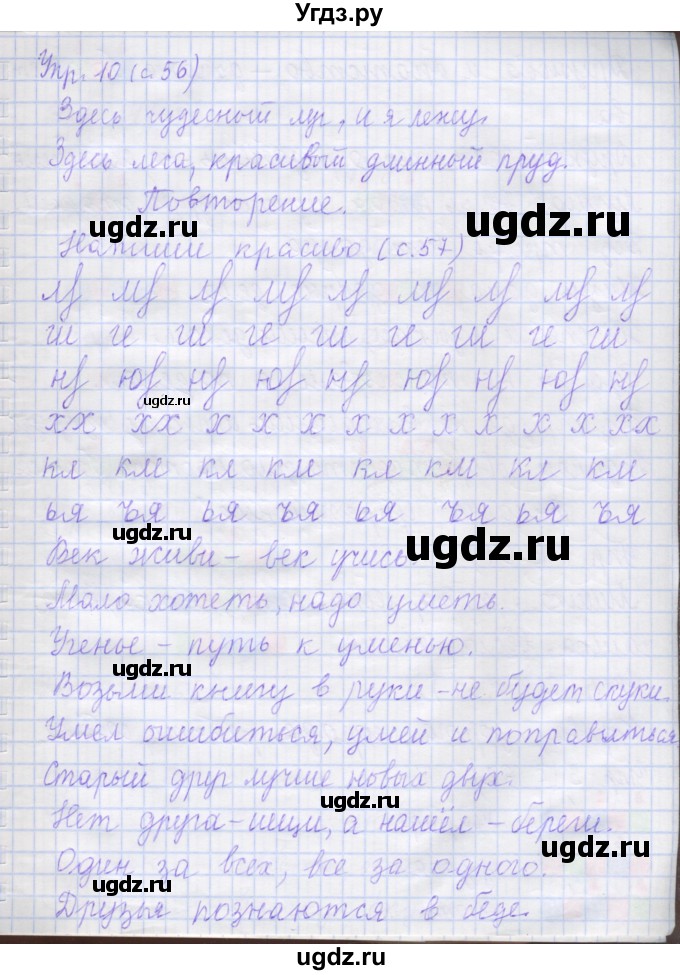 Угдз.ру
Упр. 10 (с. 56)
Здесь чудесный луг, и я лежу.
Здесь леса, красивый длинный пруд.
Повторение.
ugdz.ru
ugdz.ru
Напиши красиво (с. 57)
лф мф лф мф лф мф лф мф лф
ги ге ги ге ги ге ги ге ги
нф юф нф юф нф юф нф юф нф
ugdz.ru
хх хх х х х х х х х х х х хх
кл км кл км кл км кл км
ья ъя ья ъя ья ъя ья ъя
ugdz.ru
ugdz.ru
Век живи – век учись.
Мало хотеть, надо уметь.
Ученье – путь к уменью.
ugdz.ru
Возьми книгу в руки – не будет скуки.
Умел ошибиться, умей и поправиться
ugdz.ru
Старый друг лучше новых двух.
ugdz.ru
Нет друга – ищи, а нашёл – береги.
ugdz.ru
Один за всех, все за одного.
Друзья познаются в беде.
ugdz.ru